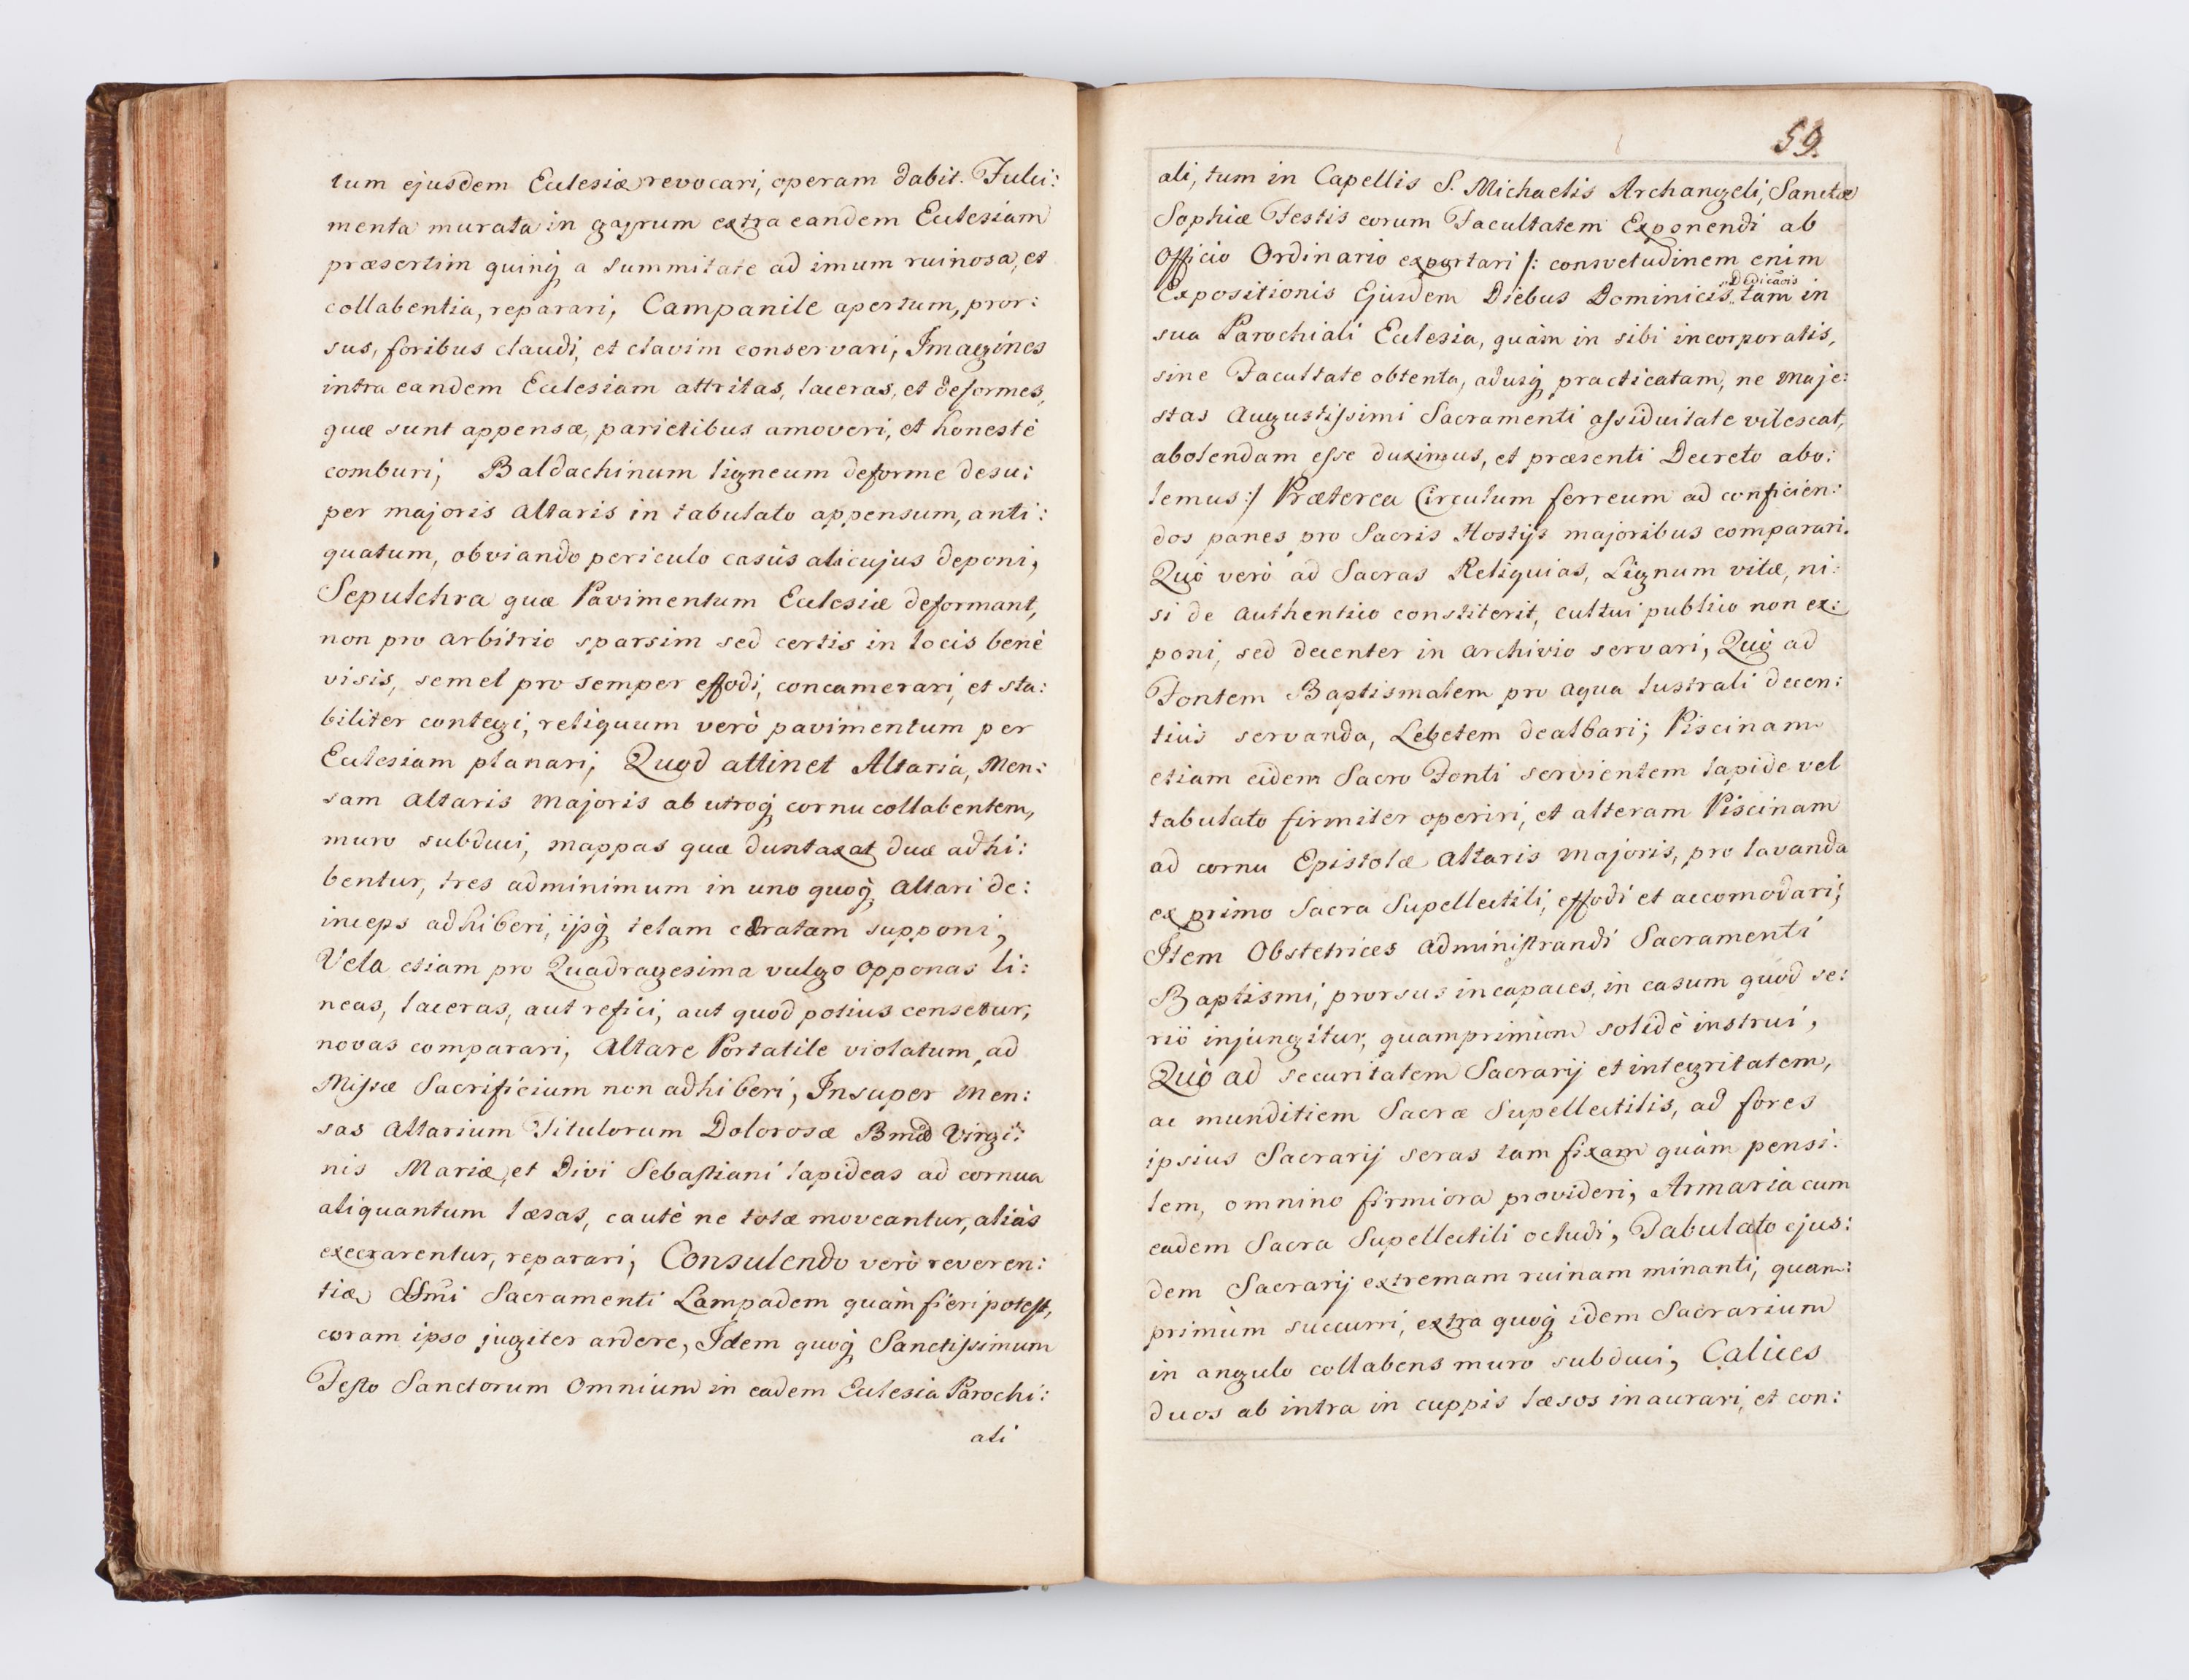 tum ejusdem Ecclesiæ revocari, operam dabit. Fulci:
menta murata in gayrum extra eandem Ecclesiam
præsertim quinq́ a summitate ad imum ruinosa, et
collabentia, reparari, Campanile apertum, pror:
sus, foribus claudi, et clavim conservari; Imagines
intra eandem Ecclesiam attritas, laceras, et deformes,
quæ sunt appensæ, parietibus amoveri, et honestè
comburi; Baldachinum ligneum deforme desu:
per majoris Altaris in tabulato appensum, anti:
quatum, obviando periculo casûs alicujus deponi,
Sepulchra quæ Pavimentum Ecclesiæ deformant,
non pro arbitrio sparsim sed certis in locis benè
visis, semel pro semper effodi, concamerari, et sta:
biliter contegi, reliquum verò pavimentum per
Ecclesiam planari, Quod attinet Altaria, Men:
sam Altaris Majoris ab utroq́ cornu collabentem,
muro subduci, mappas quæ duntaxat duæ adhi:
bentur, tres adminimum in uno quoq́ Altari de:
inceps adhiberi, ijsq́ telam ceratam supponi,
Vela etiam pro Quadragesima vulgo Opponas li:
neas, laceras, aut refici, aut quod potius censetur,
novas comparari, Altare Portatile violatum, ad
Missæ Sacrificium non adhiberi, Insuper Men:
sas Altarium Titulorum Dolorosæ Bmæ Virgi:
nis Mariæ, et Divi Sebastiani lapideas ad cornua
aliquantum læsas, cautè ne totæ moveantur, aliàs
execrarentur, reparari; Consulendo verò reveren:
tiæ SSmi Sacramenti Lampadem quàm fieri potest,
coram ipso jugiter ardere, Idem quoq́ Sanctissimum
Festo Sanctorum Omnium in eadem Ecclesia Parochi:
ali
59.
ali, tum in Capellis S. Michaelis Archangeli, Sanctæ
Sophiæ Festis eorum Facultatem Exponendi ab
Officio Ordinario exportari /: consvetudinem enim
Dedicãois
Expositionis Ejusdem Diebus Dominicis tam in
sua Parochiali Ecclesia, quàm in sibi incorporatis,
sine Facultate obtenta, adusq́ practicatam, ne Maje:
stas Augustissimi Sacramenti assiduitate vilescat,
abolendam esse duximus, et præsenti Decreto abo:
lemus :/ Præterea Circulum ferreum ad conficien:
dos panes pro Sacris Hostijs majoribus comparari.
Quò verò ad Sacras Reliquias, Lignum vitæ, ni:
si de Authentico constiterit, cultui publico non ex:
poni, sed decenter in Archivio servari, Quò ad
Fontem Baptismalem pro Aqua lustrali decen:
tiùs servanda, Lebetem dealbari; Piscinam
etiam eidem Sacro Fonti servientem lapide vel
tabulato firmiter operiri, et alteram Piscinam
ad cornu Epistolæ Altaris Majoris, pro lavanda
ex primo Sacra Supellectili, effodi et accomodari;
Item Obstetrices administrandi Sacramenti
Baptismi, prorsus incapaces, in casum quod se:
riò injungitur, quamprimùm solidè instrui,
Quò ad securitatem Sacrarij et integritatem,
ac munditiem Sacræ Supellectilis, ad fores
ipsius Sacrarij seras tam fixam quàm pensi:
lem, omnino firmiora provideri, Armaria cum
eadem Sacra Supellectili ocludi, Tabulato ejus:
dem Sacrarij extremam ruinam minanti, quam:
primùm succurri, extra quoq́ idem Sacrarium
in angulo collabens muro subduci, Calices
duos ab intra in cuppis læsos inaurari, et con: